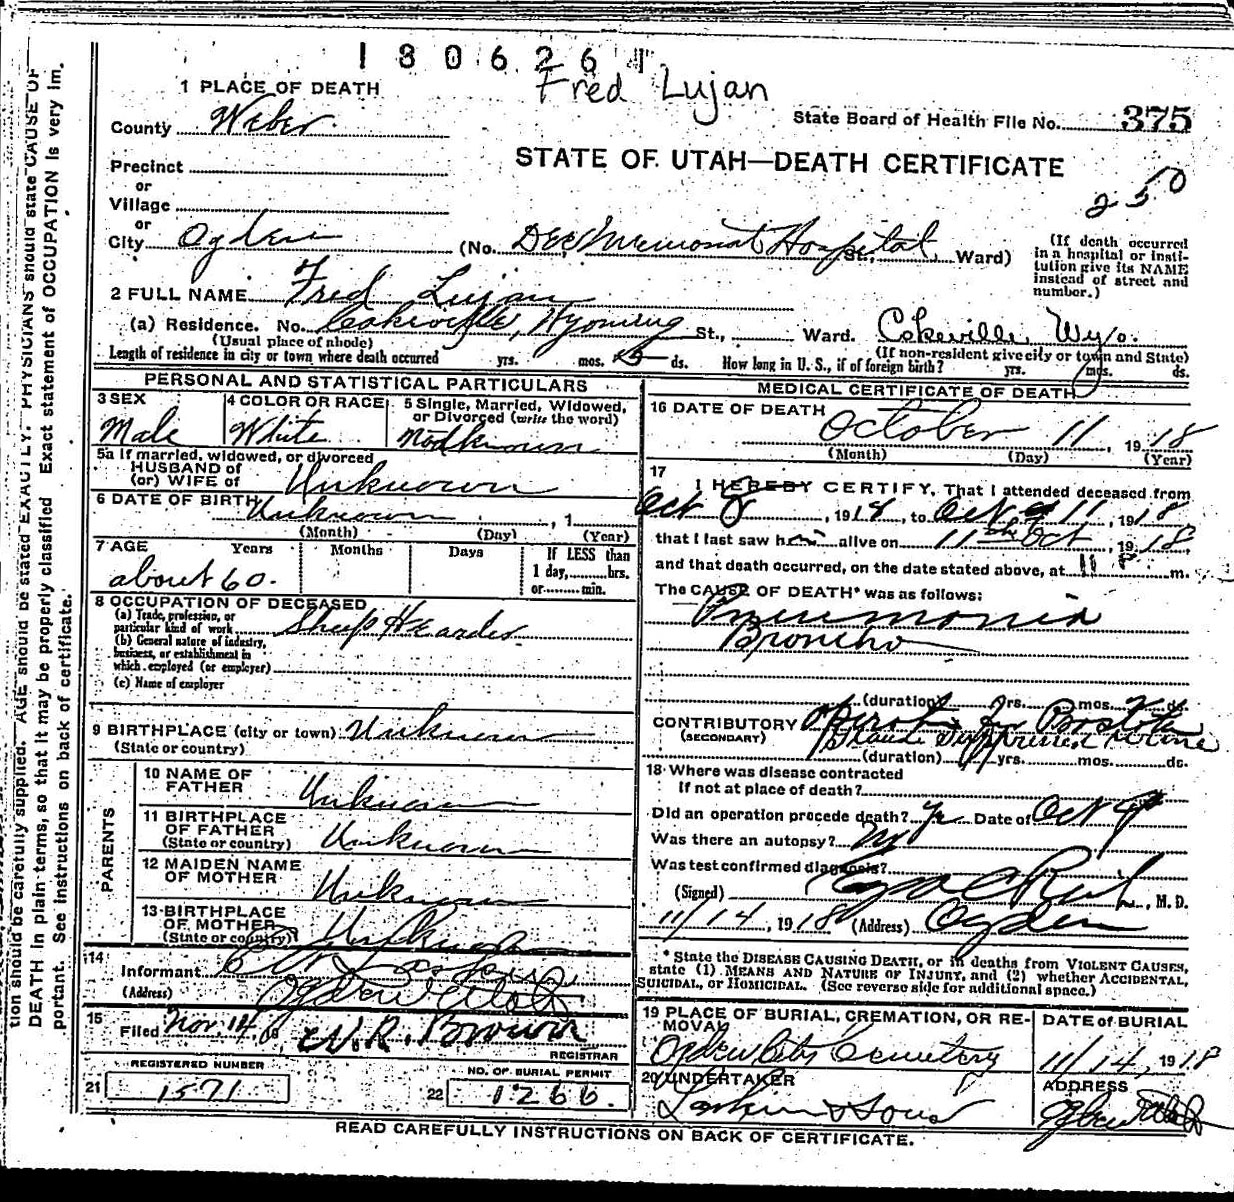 1 8 0 6 2 6
Fred Lujan
1 PLACE OF DEATH
County Weber
State Board of Health File No. 375
STATE OF UTAH—DEATH CERTIFICATE
250
Precinct
or
Village
or
City Ogden (No. Dee Memorial Hospital St., Ward)
(If death occurred
in a hospital or insti-
tution give its NAME
instead of street and
number.)
2 FULL NAME Fred Lujan
(a) Residence. No. Cokeville, Wyoming St., Ward. Cokeville Wyo.
(Usual place of abode) (If non-resident give city or town and State)
Length of residence in city or town where death occurred yrs. mos. ds. How long in U. S., if of foreign birth? yrs. mos. ds.
PERSONAL AND STATISTICAL PARTICULARS
3 SEX
Male
4 COLOR OR RACE
White
5 Single, Married, Widowed,
or Divorced (write the word)
5a If married, widowed, or divorced
HUSBAND of
(or) WIFE of Unknown
6 DATE OF BIRTH Unknown , 1
(Month) (Day) (Year)
7 AGE Years Months Days If LESS than
1 day, hrs.
or min.
about 60.
8 OCCUPATION OF DECEASED
(a) Trade, profession, or
particular kind of work Sheep Hearder
(b) General nature of industry,
business, or establishment in
which employed (or employer)
(c) Name of employer
9 BIRTHPLACE (city or town) Unknown
(State or country)
PARENTS
10 NAME OF
FATHER Unknown
11 BIRTHPLACE
OF FATHER
(State or country) Unknown
12 MAIDEN NAME
OF MOTHER Unknown
13 BIRTHPLACE
OF MOTHER
(State or country) Unknown
14
Informant
(Address) Ogden Utah
15
Filed Nov. 14, W.R. Brown
REGISTRAR
REGISTERED NUMBER
21 1571
NO. OF BURIAL PERMIT
22 1266.
MEDICAL CERTIFICATE OF DEATH
16 DATE OF DEATH October 11, 1918
(Month) (Day) (Year)
17
I HEREBY CERTIFY, That I attended deceased from
Oct 8, 1918, to Oct 11, 1918
that I last saw h alive on 11th Oct, 1918,
and that death occurred, on the date stated above, at 11 P. m.
The CAUSE OF DEATH* was as follows:
Pneumonia
Broncho
(duration) yrs. mos. ds.
CONTRIBUTORY
(SECONDARY)
(duration) yrs. mos. ds.
18 Where was disease contracted
If not at place of death?
Did an operation precede death? Date of Oct 9
Was there an autopsy?
Was test confirmed diagnosis?
(Signed) , M. D.
11/14, 1918 (Address) Ogden
* State the DISEASE CAUSING DEATH, or in deaths from VIOLENT CAUSES,
state (1) MEANS AND NATURE OF INJURY, and (2) whether ACCIDENTAL,
SUICIDAL, or HOMICIDAL. (See reverse side for additional space.)
19 PLACE OF BURIAL, CREMATION, OR RE-
MOVAL
Ogden City Cemetery
DATE of BURIAL
11/14, 1918
20 UNDERTAKER
Larkin & Sons
ADDRESS
Ogden Utah
READ CAREFULLY INSTRUCTIONS ON BACK OF CERTIFICATE.
tion should be carefully supplied. AGE should be stated EXACTLY. PHYSICIANS should state CAUSE OF
DEATH in plain terms, so that it may be properly classified. Exact statement of OCCUPATION is very im-
portant. See instructions on back of certificate.